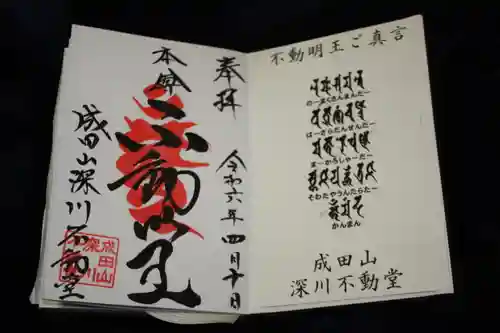 奉拝
令和六年四月十日
本尊
不動明王
成田山深川不動堂
成田山
深川
不動明王ご真言
のーまくさんまんだー
ばーさらだんせんだー
まーかろしゃーだー
そわたやうんたらたー
かんまん
成田山
深川不動堂